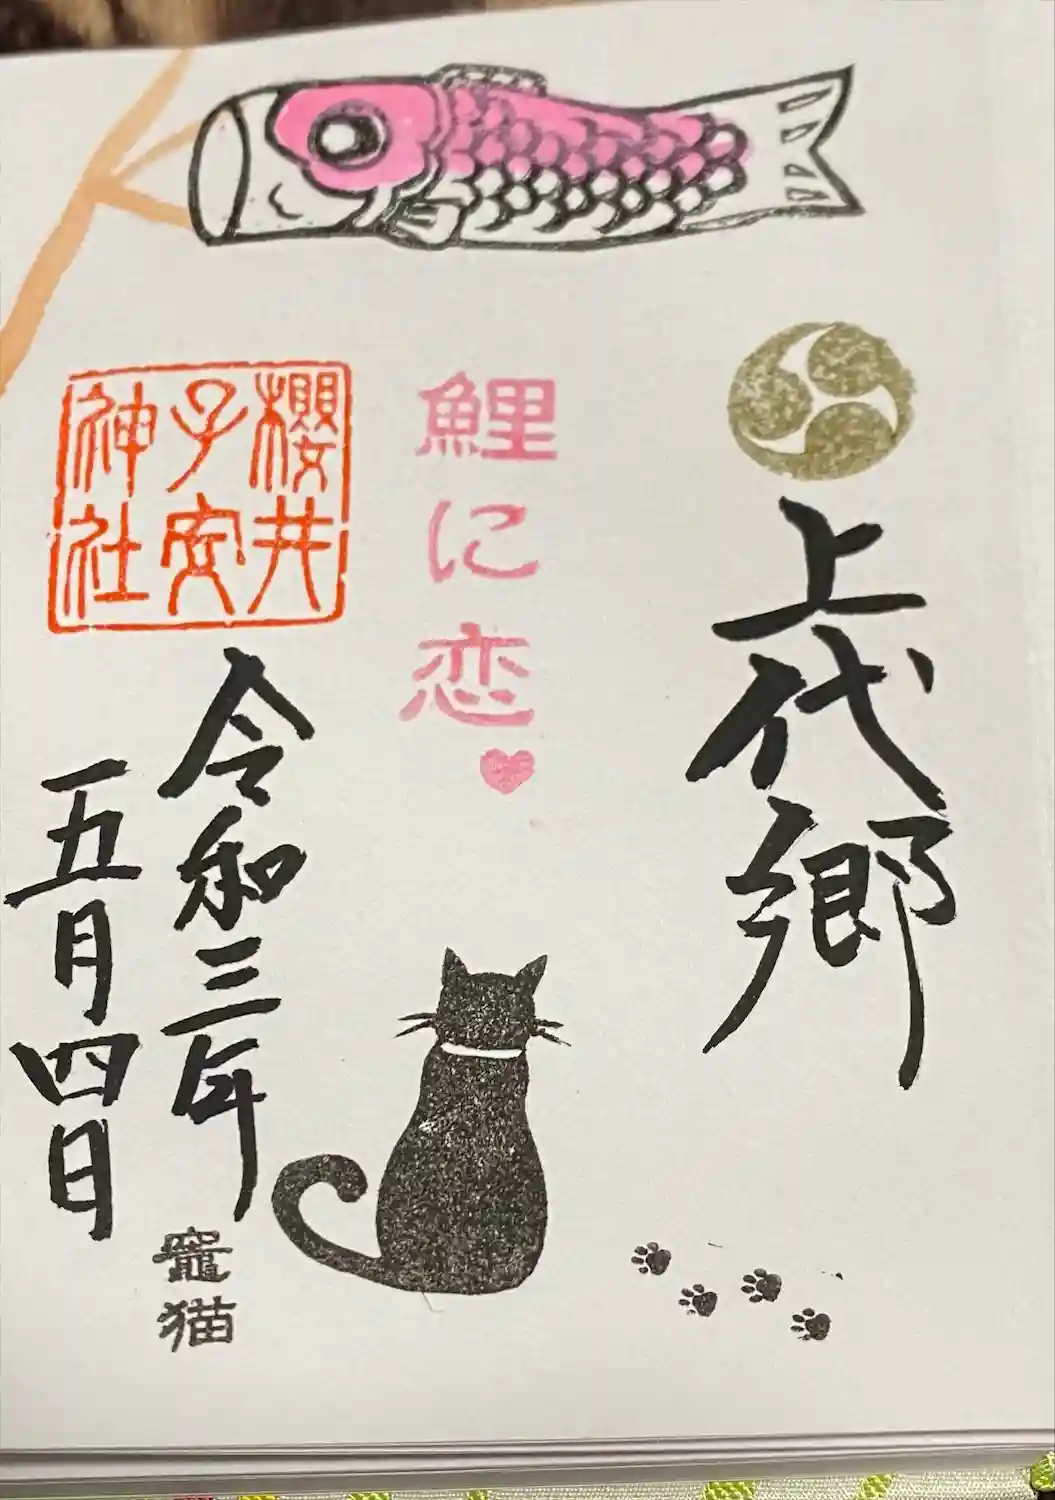 上代郷
鯉に恋
櫻井
子安
神社
令和三年
五月四日
竈猫